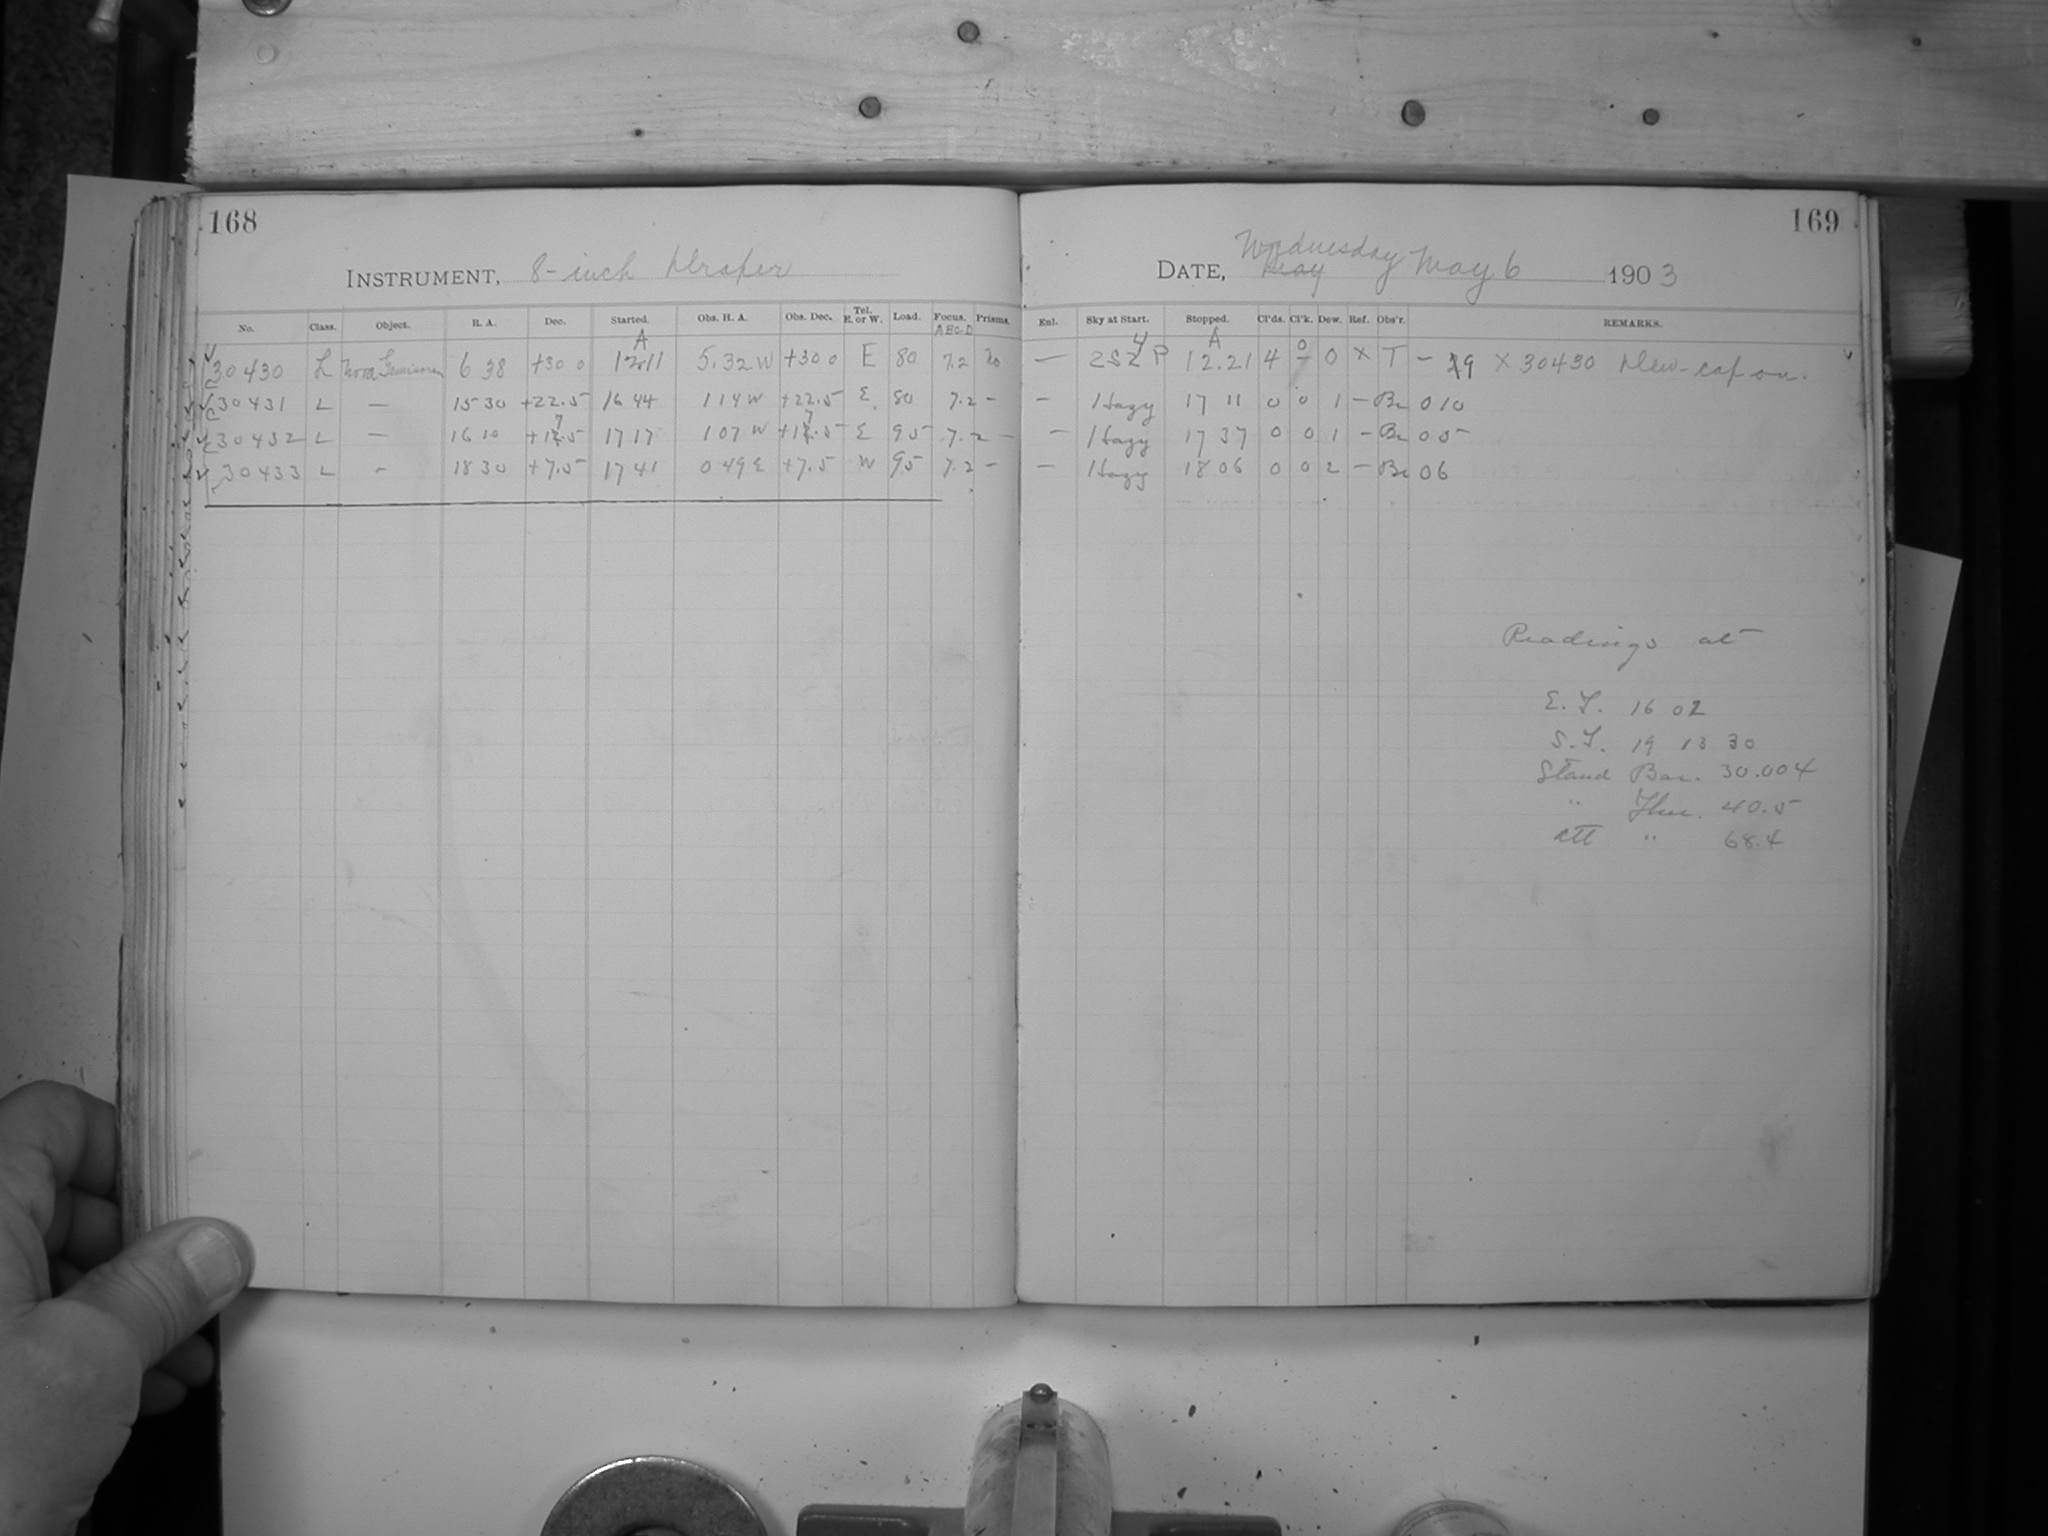 168
INSTRUMENT, 8-inch Draper
No. Class. Object. R. A. Dec. Started. Obs. H. A. Obs. Dec. Tel. E. or W. Load. Focus. Prisms.
ABCD
A
30430 L Nova Geminorum 6 38 +30 0 12 11 5.32 W +30 0 E 80 7.2 No
30431 L — 15 30 +22.5 16 44 1 14 W +22.5 E 80 7.2 –
30432 L — 16 10 +17.5 17 17 1 07 W +17.5 E 95 7.2 –
30433 L – 18 30 +7.5 17 41 0 49 E +7.5 W 95 7.2 –
169
DATE, Wednesday May 6 1903
Enl. Sky at Start. Stopped. Cl'ds. Cl'k. Dew. Ref. Obs'r. REMARKS.
A
— P 12.21 4 0 0 X T – 19 X 30430 Dew-cap on.
– Hazy 17 11 0 0 1 – Br 010
– Hazy 17 37 0 0 1 – Br 05
– Hazy 18 06 0 0 2 – Br 06
Readings at
E. T. 16 02
S. T. 19 13 30
Stand Bar. 30.004
" Ther. 40.5
att " 68.4